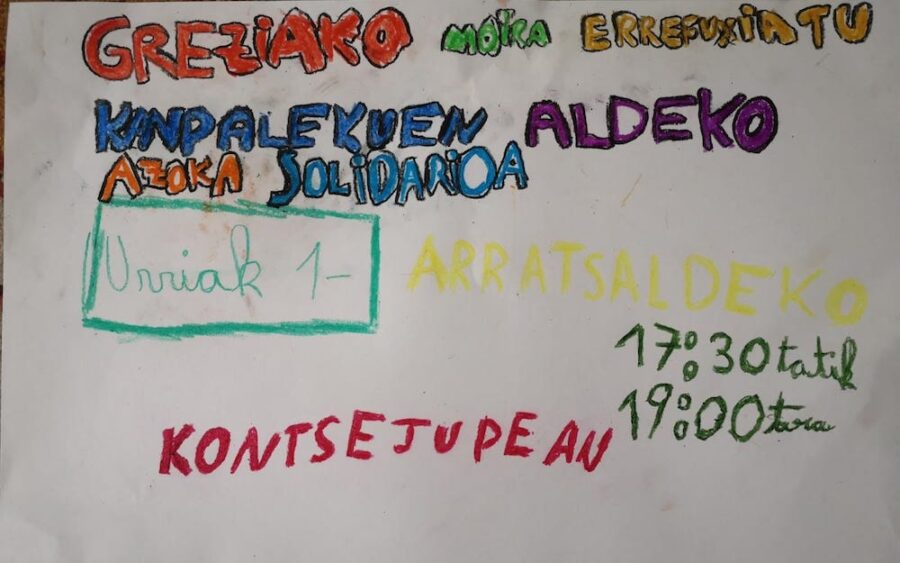 GREZIAKO MOIRA ERREFUXIATU
KANPALEKUEN ALDEKO
AZOKA SOLIDARIOA
Urriak 1- ARRATSALDEKO
17:30tatik
19:00tara
KONTSEJUPEAN